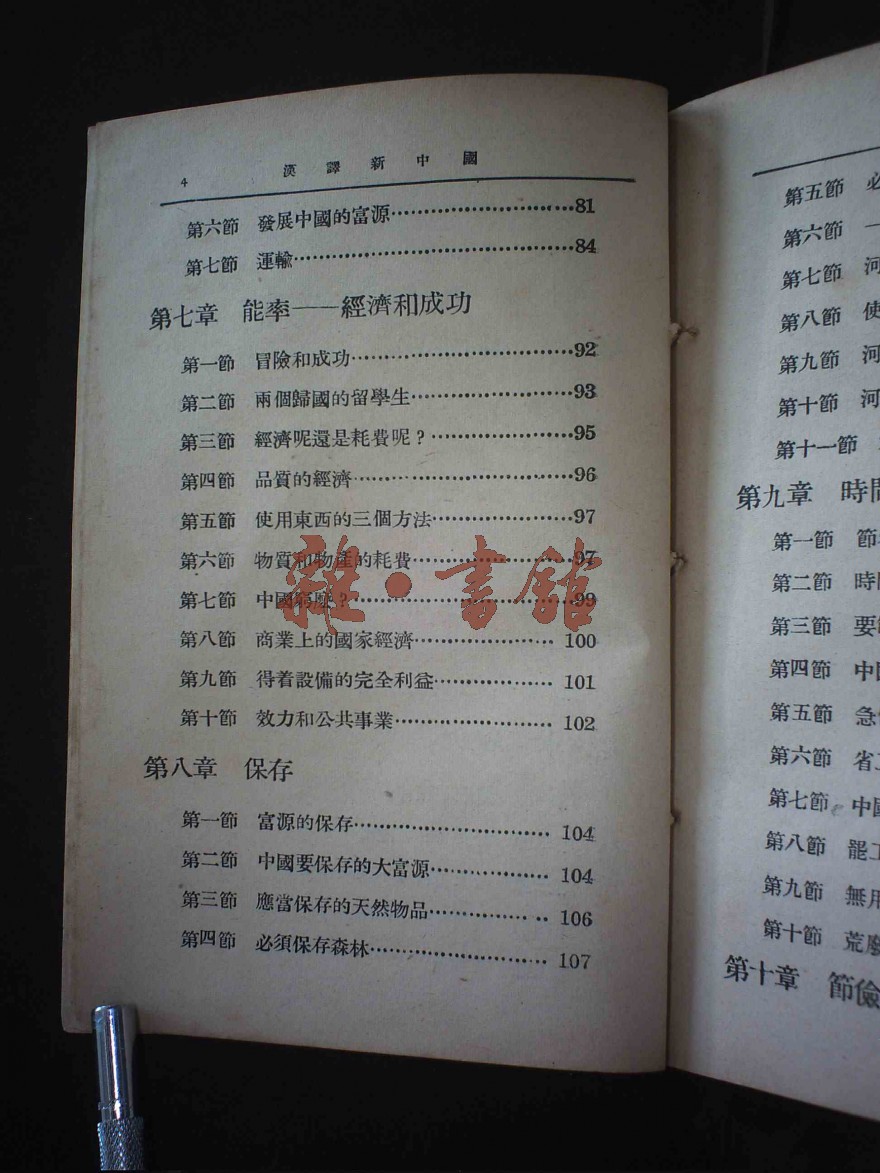 4 漢譯新中國
第六節 發展中國的富源…………………………81
第七節 運輸…………………………84
第七章 能率——經濟和成功
第一節 冒險和成功…………………………92
第二節 兩個歸國的留學生…………………………93
第三節 經濟呢還是耗費呢？…………………………95
第四節 品質的經濟…………………………96
第五節 使用東西的三個方法…………………………97
第六節 物質和物產的耗費…………………………97
第七節 中國窮麽？…………………………99
第八節 商業上的國家經濟…………………………100
第九節 得着設備的完全利益…………………………101
第十節 效力和公共事業…………………………102
第八章 保存
第一節 富源的保存…………………………104
第二節 中國要保存的大富源…………………………104
第三節 應當保存的天然物品…………………………106
第四節 必須保存森林…………………………107
雜·書館
第五節 必
第六節 一
第七節 河
第八節 使
第九節 河
第十節 河
第十一節
第九章 時間
第一節 節
第二節 時間
第三節 要
第四節 中國
第五節 急
第六節 省
第七節 中國
第八節 罷工
第九節 無用
第十節 荒廢
第十章 節儉